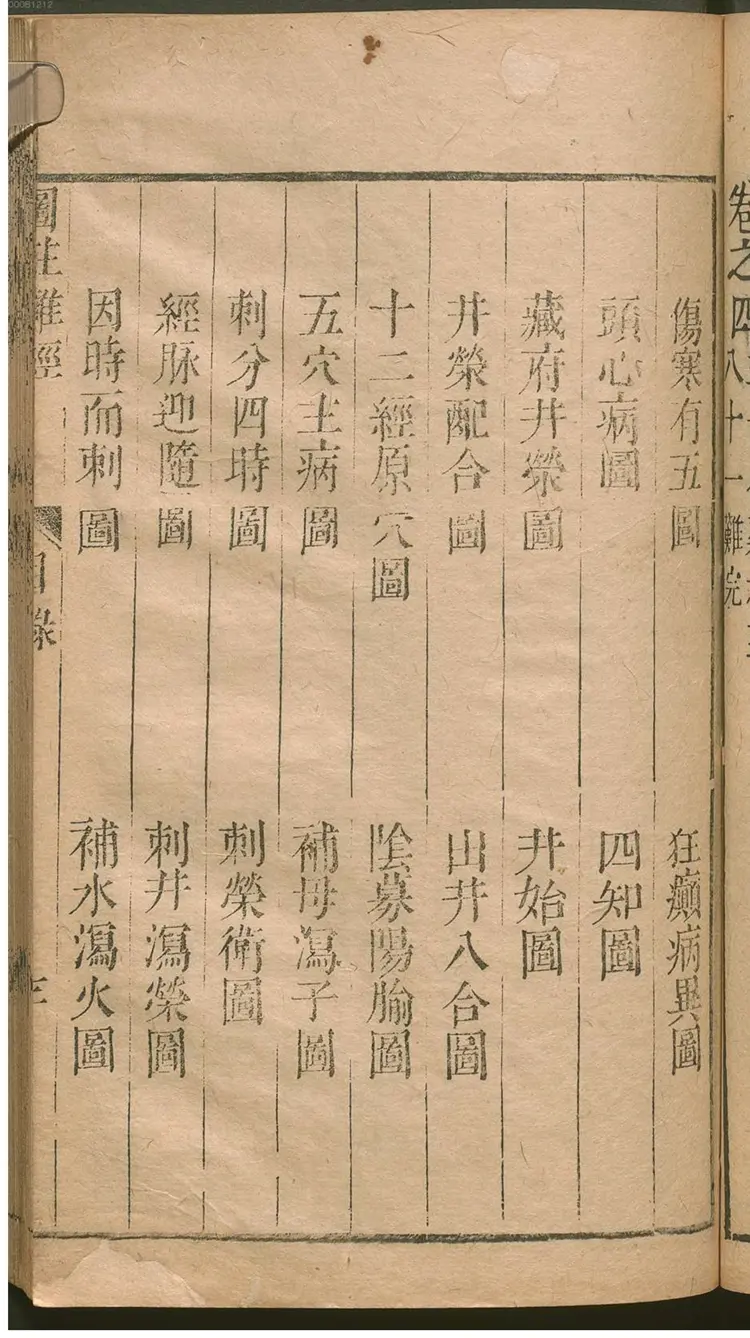 00081212
卷之四
八十一難完
傷寒有五圖　狂癲病異圖
頭心病圖　四知圖
藏府井榮圖　井始圖
井榮配合圖　出井八合圖
十二經原穴圖　陰募陽腧圖
五穴主病圖　補母瀉子圖
刺分四時圖　刺榮衛圖
經脉迎隨圖　刺井瀉榮圖
因時而刺圖　補水瀉火圖
圖註難經　目錄　三